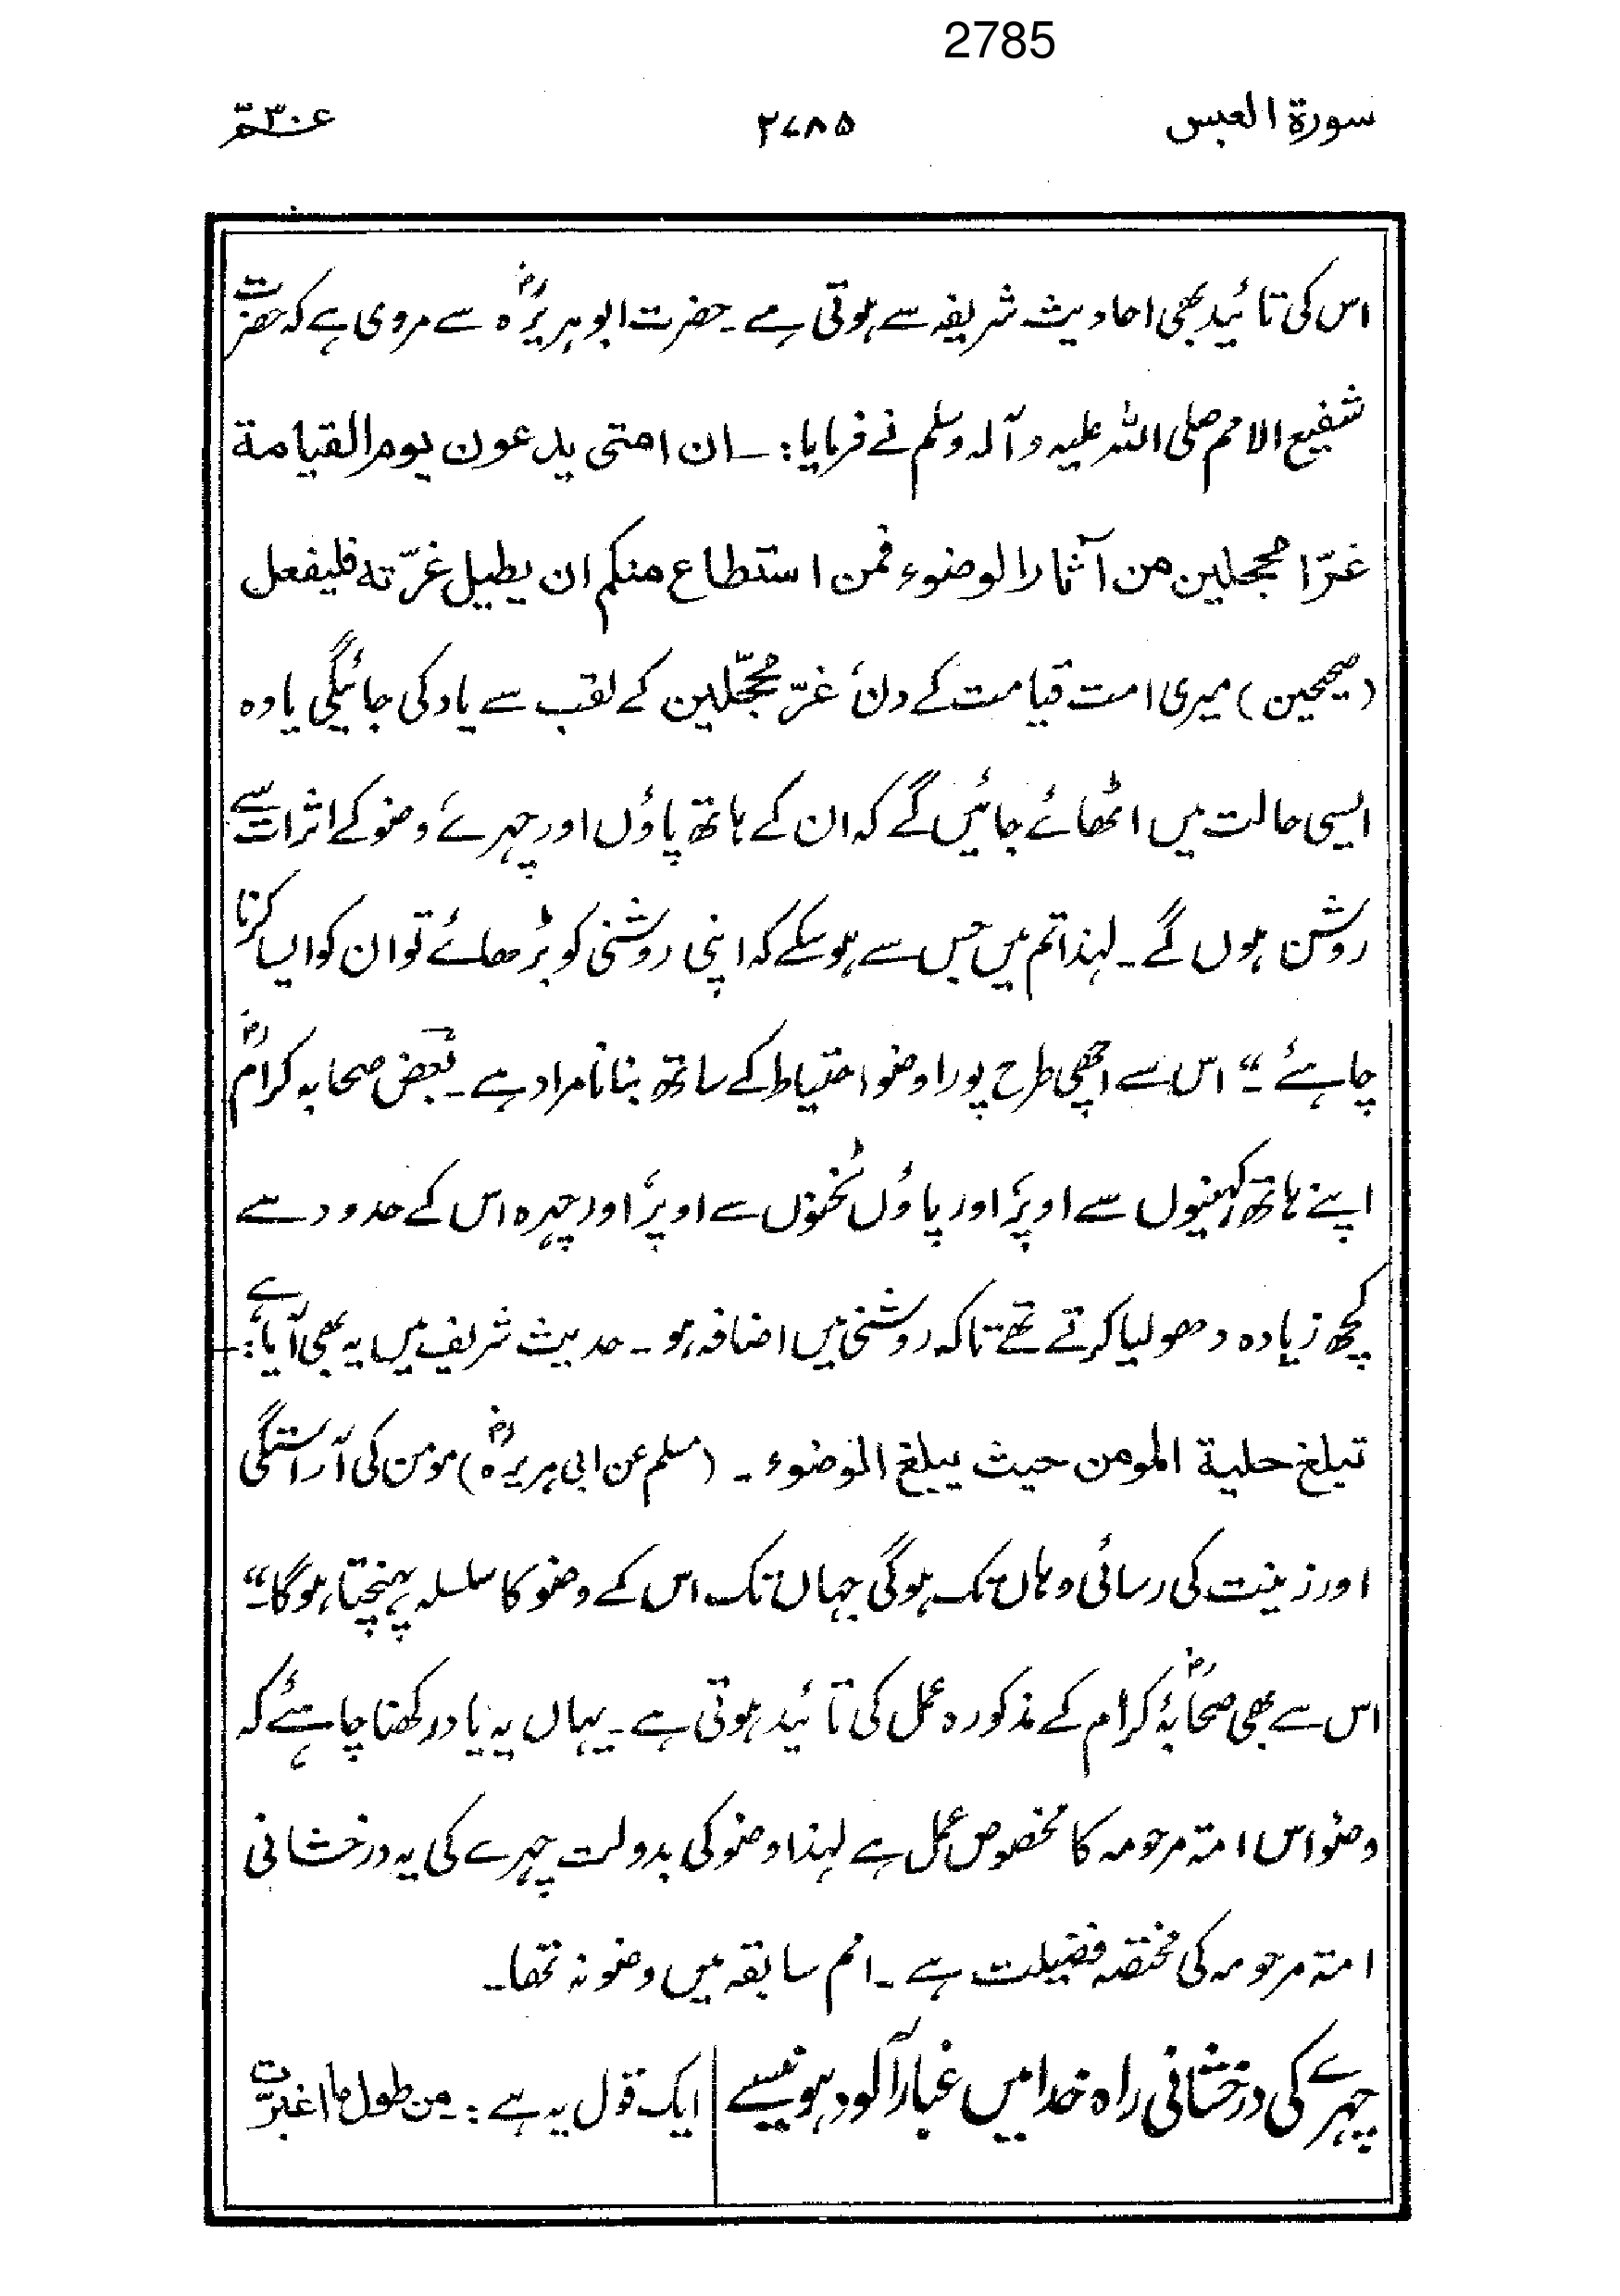 2785
سورۃ العبس ۲۷۸۵ عم ۳۰
اس کی تائید بھی احادیث شریفہ سے ہوتی ہے۔ حضرت ابو ہریرہؓ سے مروی ہے کہ حضرت
شفیع الامم صلی اللہ علیہ وآلہ وسلم نے فرمایا:۔ ان امتی یدعون یوم القیامة
غرّا محجلین من آثار الوضوء فمن استطاع منکم ان یطیل غرّته فلیفعل
(صحیحین) میری امت قیامت کے دن، غرّ محجّلین کے لقب سے یاد کی جائیگی یا وہ
ایسی حالت میں اٹھائے جائیں گے کہ ان کے ہاتھ پاؤں اور چہرے، وضو کے اثرات سے
روشن ہوں گے۔ لہذا تم میں جس سے ہو سکے کہ اپنی روشنی کو بڑھائے تو ان کو ایسا کرنا
چاہئے ۔“ اس سے اچھی طرح پورا وضو احتیاط کے ساتھ بنانا مراد ہے۔ بعض صحابہ کرامؓ
اپنے ہاتھ کہنیوں سے اوپر، اور پاؤں ٹخنوں سے اوپر، اور چہرہ اس کے حدود سے
کچھ زیادہ دھو لیا کرتے تھے تاکہ روشنی میں اضافہ ہو۔ حدیث شریف میں یہ بھی آیا ہے:۔
تبلغ حلیة المومن حیث یبلغ الوضوء ۔ (مسلم عن ابی ہریرہؓ) مومن کی آراستگی
اور زینت کی رسائی وہاں تک ہوگی جہاں تک اس کے وضو کا سلسلہ پہنچتا ہوگا۔“
اس سے بھی صحابۂؓ کرام کے مذکورہ عمل کی تائید ہوتی ہے۔ یہاں یہ یاد رکھنا چاہئے کہ
وضو اس امۃ مرحومہ کا مخصوص عمل ہے لہذا وضو کی بدولت چہرے کی یہ درخشانی
امۃ مرحومہ کی مختصہ فضیلت ہے۔ امم سابقہ میں وضو نہ تھا۔
چہرے کی درخشانی راہ خدا میں غبار آلود ہونیسے | ایک قول یہ ہے:۔ من طول ما اغبرّت